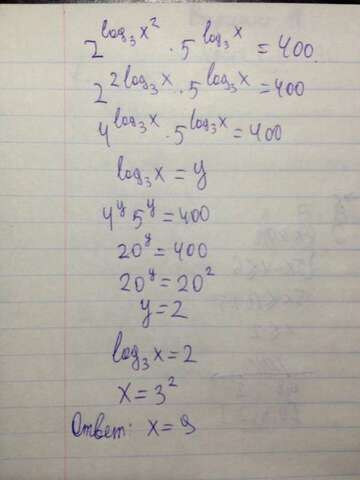 2^{log₃x²} · 5^{log₃x} = 400.
2^{2log₃x} · 5^{log₃x} = 400
4^{log₃x} · 5^{log₃x} = 400
log₃x = y
4^y 5^y = 400
20^y = 400
20^y = 20²
y = 2
log₃x = 2
x = 3²
Ответ: x = 9